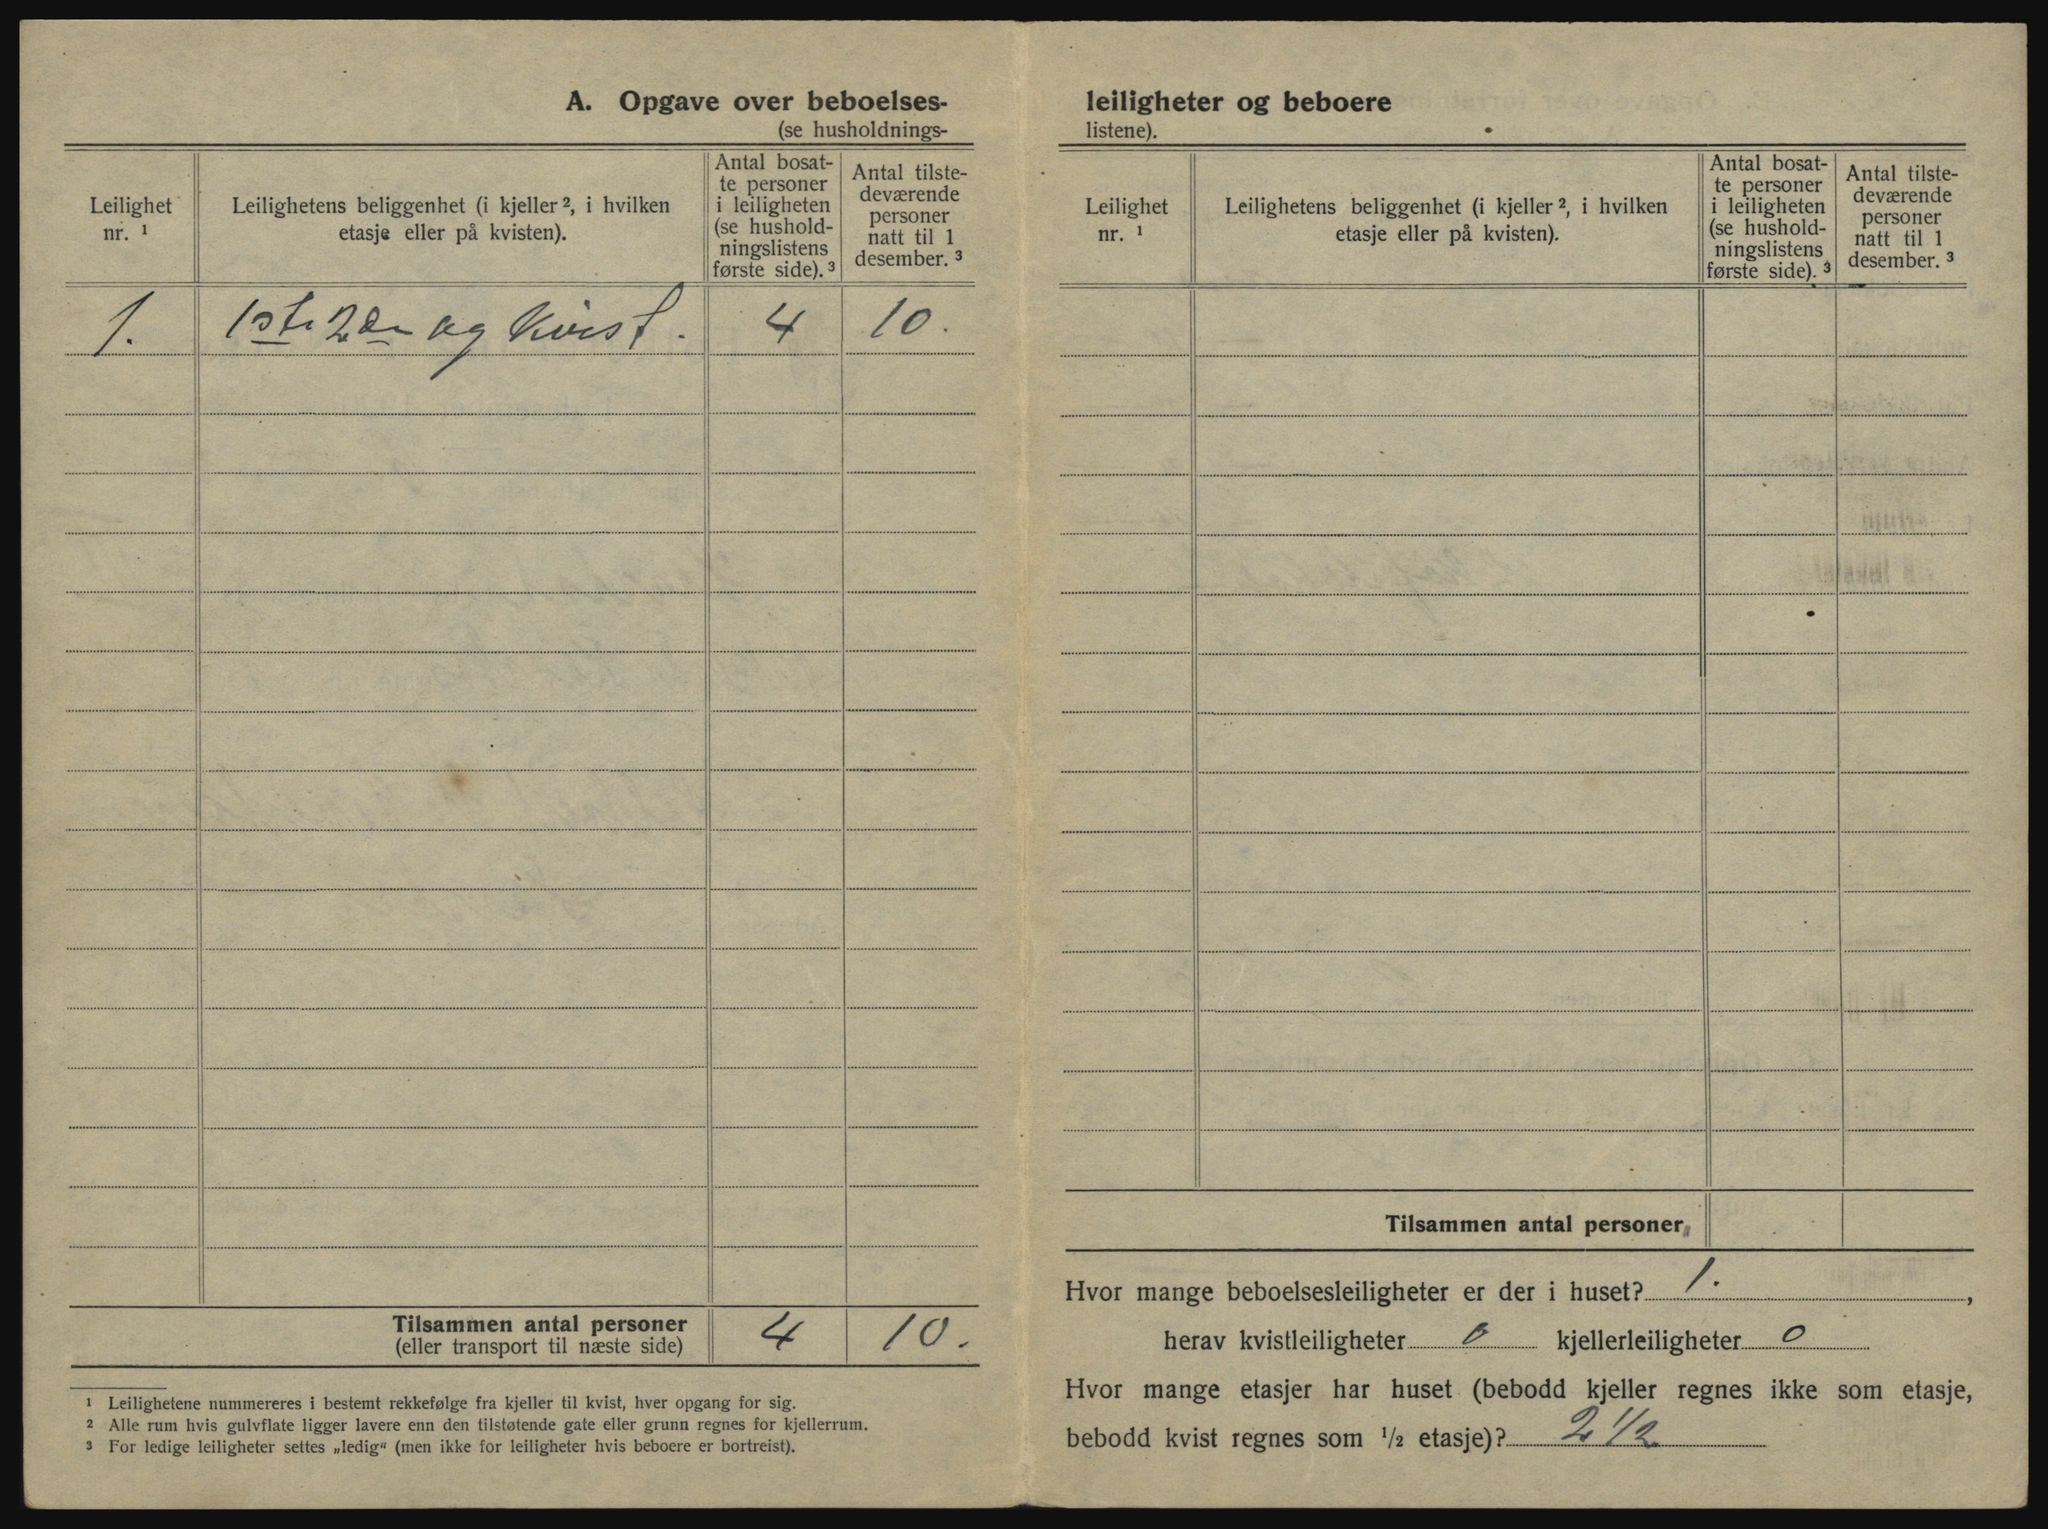 A. Opgave over beboelses-
(se husholdnings-
Leilighet
nr. ¹
Leilighetens beliggenhet (i kjeller ², i hvilken
etasje eller på kvisten).
Antal bosat-
te personer
i leiligheten
(se hushold-
ningslistens
første side). ³
Antal tilste-
deværende
personer
natt til 1
desember. ³
1. 1ste 2den og kvist. 4 10.
Tilsammen antal personer 4 10.
(eller transport til næste side)
¹ Leilighetene nummereres i bestemt rekkefølge fra kjeller til kvist, hver opgang for sig.
² Alle rum hvis gulvflate ligger lavere enn den tilstøtende gate eller grunn regnes for kjellerrum.
³ For ledige leiligheter settes „ledig“ (men ikke for leiligheter hvis beboere er bortreist).
leiligheter og beboere
listene).
Leilighet
nr. ¹
Leilighetens beliggenhet (i kjeller ², i hvilken
etasje eller på kvisten).
Antal bosat-
te personer
i leiligheten
(se hushold-
ningslistens
første side). ³
Antal tilste-
deværende
personer
natt til 1
desember. ³
Tilsammen antal personer
Hvor mange beboelsesleiligheter er der i huset? 1.,
herav kvistleiligheter 0 kjellerleiligheter 0
Hvor mange etasjer har huset (bebodd kjeller regnes ikke som etasje,
bebodd kvist regnes som ½ etasje)? 2 1/2